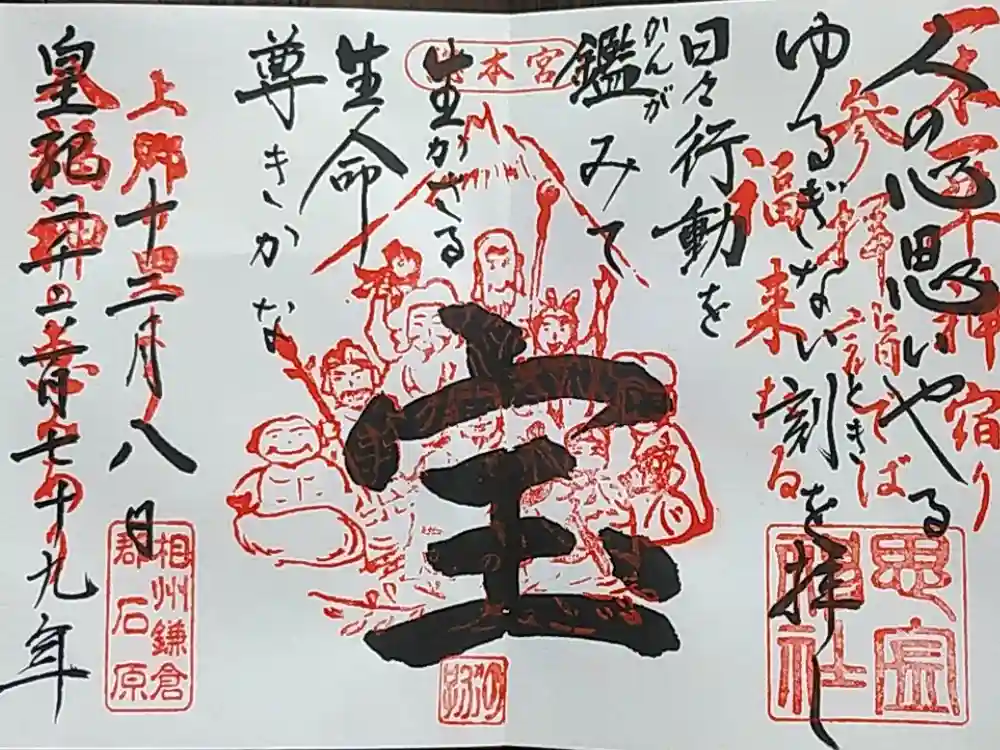 人の心思いやる
ゆるぎない刻を拝し
とき
日々行動を
鑑みて
かんが
生かさる
生命
尊きかな
宝
本宮
参拝詣でば
福来たる
宿り
相州鎌倉
郡石原
上郷
十二月八日
皇紀二千六百七十九年